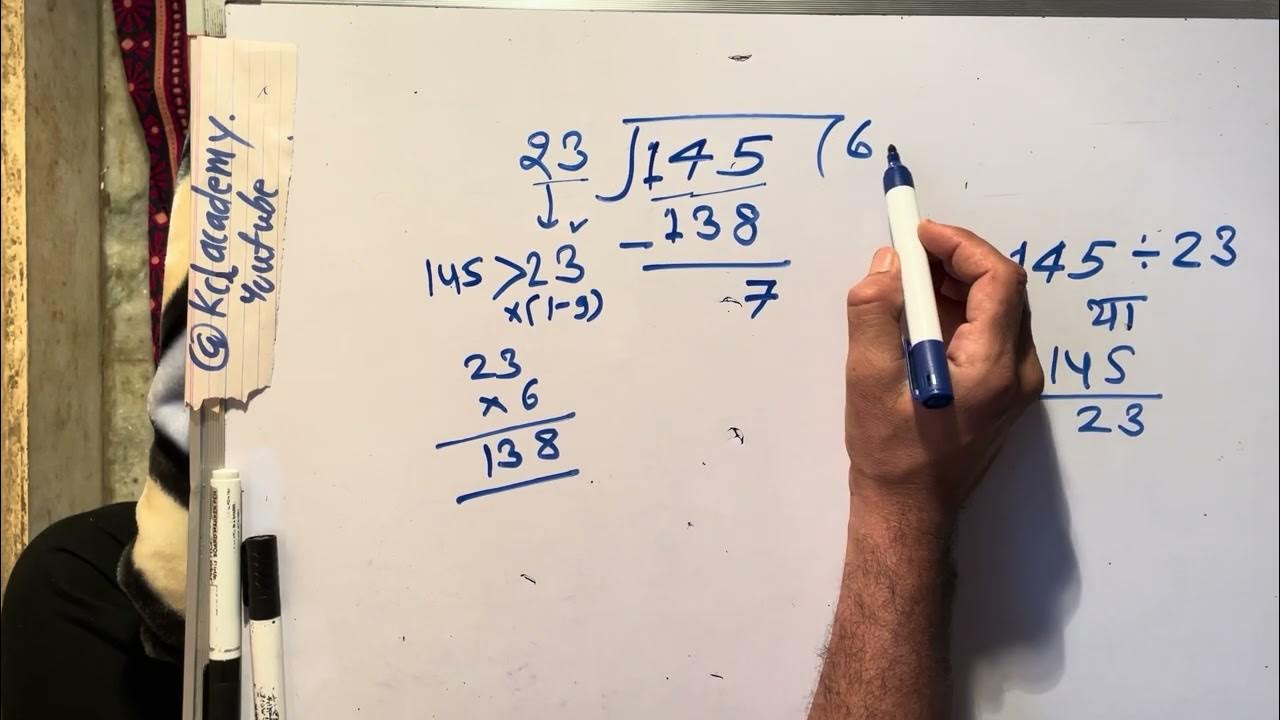 @Kclacademy.
Yutube
23 145 ( 6
- 138
7
145 > 23
x(1-9)
23
x 6
138
145 ÷ 23
या
145
23